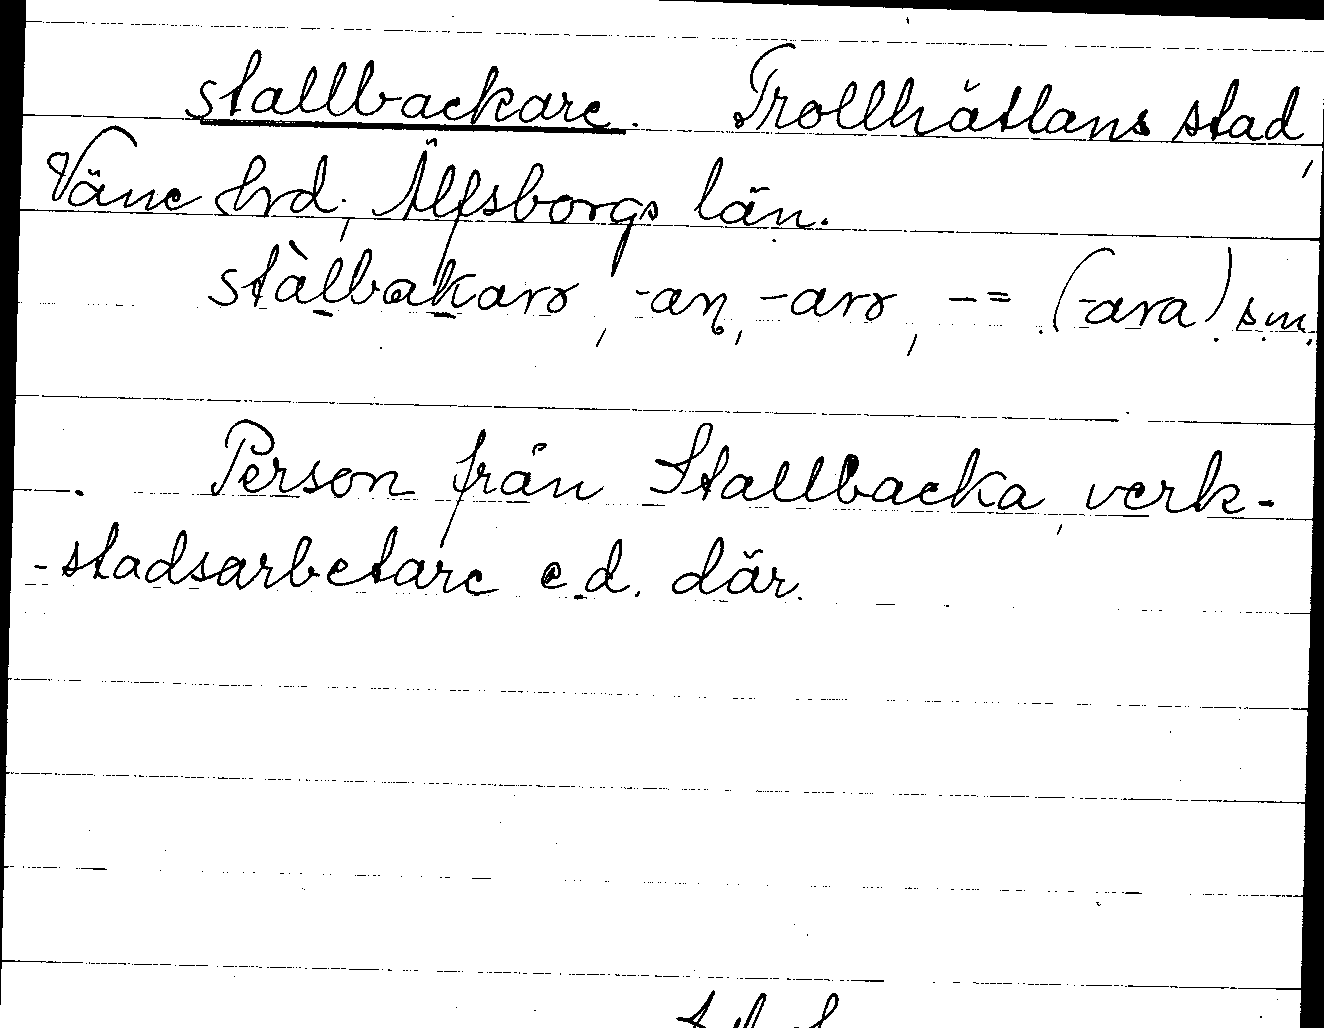 stallbackare. Trollhättans stad,
Väne hrd; Älfsborgs län.
stàlbakarə, -aɳ, -arə, -= (-ara) s.m.
Person från Stallbacka, verk-
-stadsarbetare e.d. där.